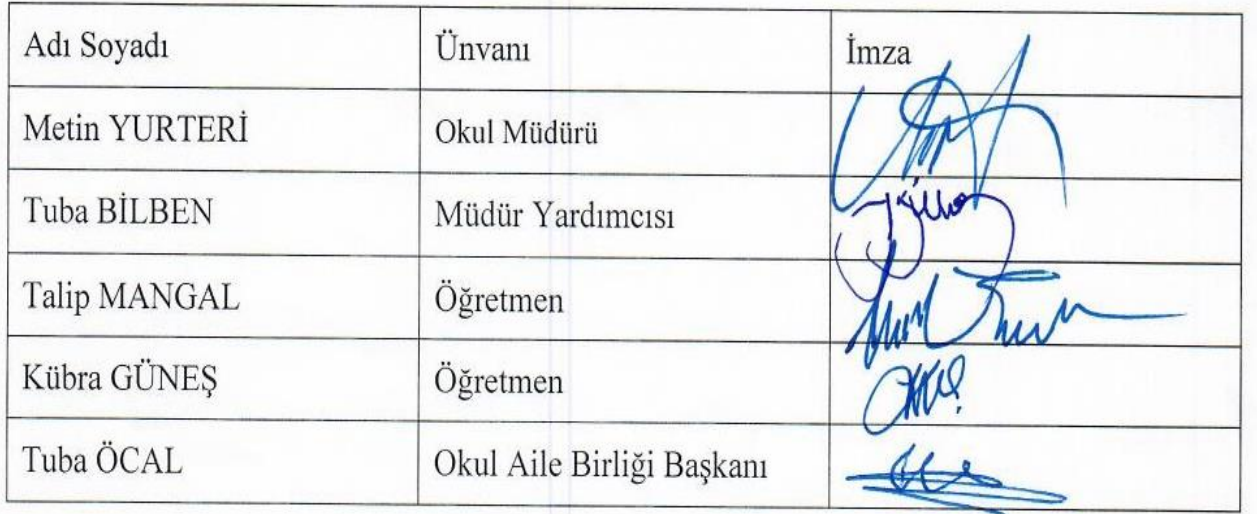 Adı Soyadı Ünvanı İmza
Metin YURTERİ Okul Müdürü
Tuba BİLBEN Müdür Yardımcısı
Talip MANGAL Öğretmen
Kübra GÜNEŞ Öğretmen
Tuba ÖCAL Okul Aile Birliği Başkanı